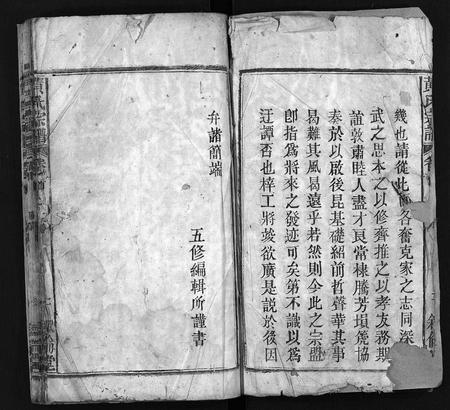 黃氏宗譜
幾也請從此而各奮克家之志同深
武之思本之以修齊推之以孝友務期
誼敦肅睦人盡才良當棣騰芳壎篪協
奏於以啟後昆基礎紹前哲聲華其事
曷難其風曷遠乎若然則今此之宗盟
卽指為將來之發迹可矣第不識以為
迂譚否也梓工將竣欲廣是說於後因
弁諸簡端
五修編輯所謹書
黃氏宗譜